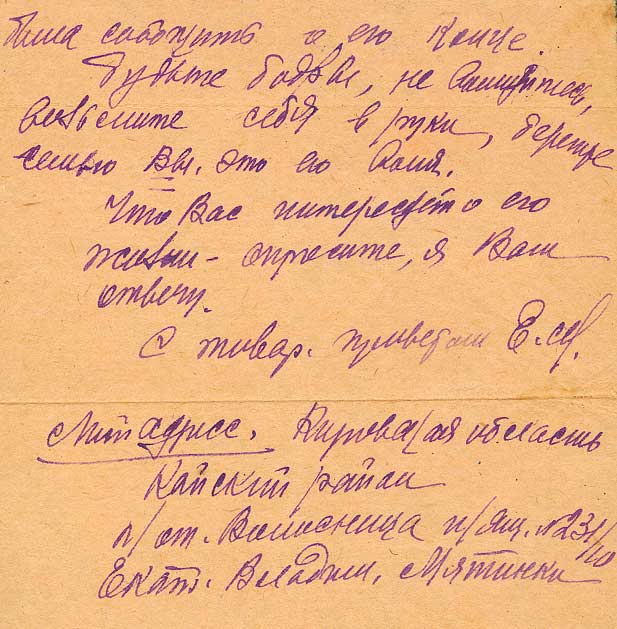 была сообщить о его конце.
Будьте бодры, не
возьмите себя в руки, берегите
семью Вы. это его
Что Вас интересует о его
жизни - спросите, я Вам
отвечу.
С товар. приветом Е. М.
Мой адресс. Кировская область
Кайский район
п/от. Волосница п/ящ. № 231/10
Екат. Владим. Мятинки